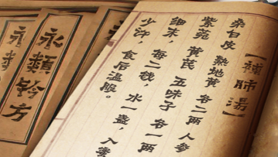 補肺湯
桑白皮 熟地黄 各二兩 人參
紫菀 黄芪 五味子 各一兩
細末,每二錢,水一盞,入蜜
少許,食后溫服。
永類鈐方